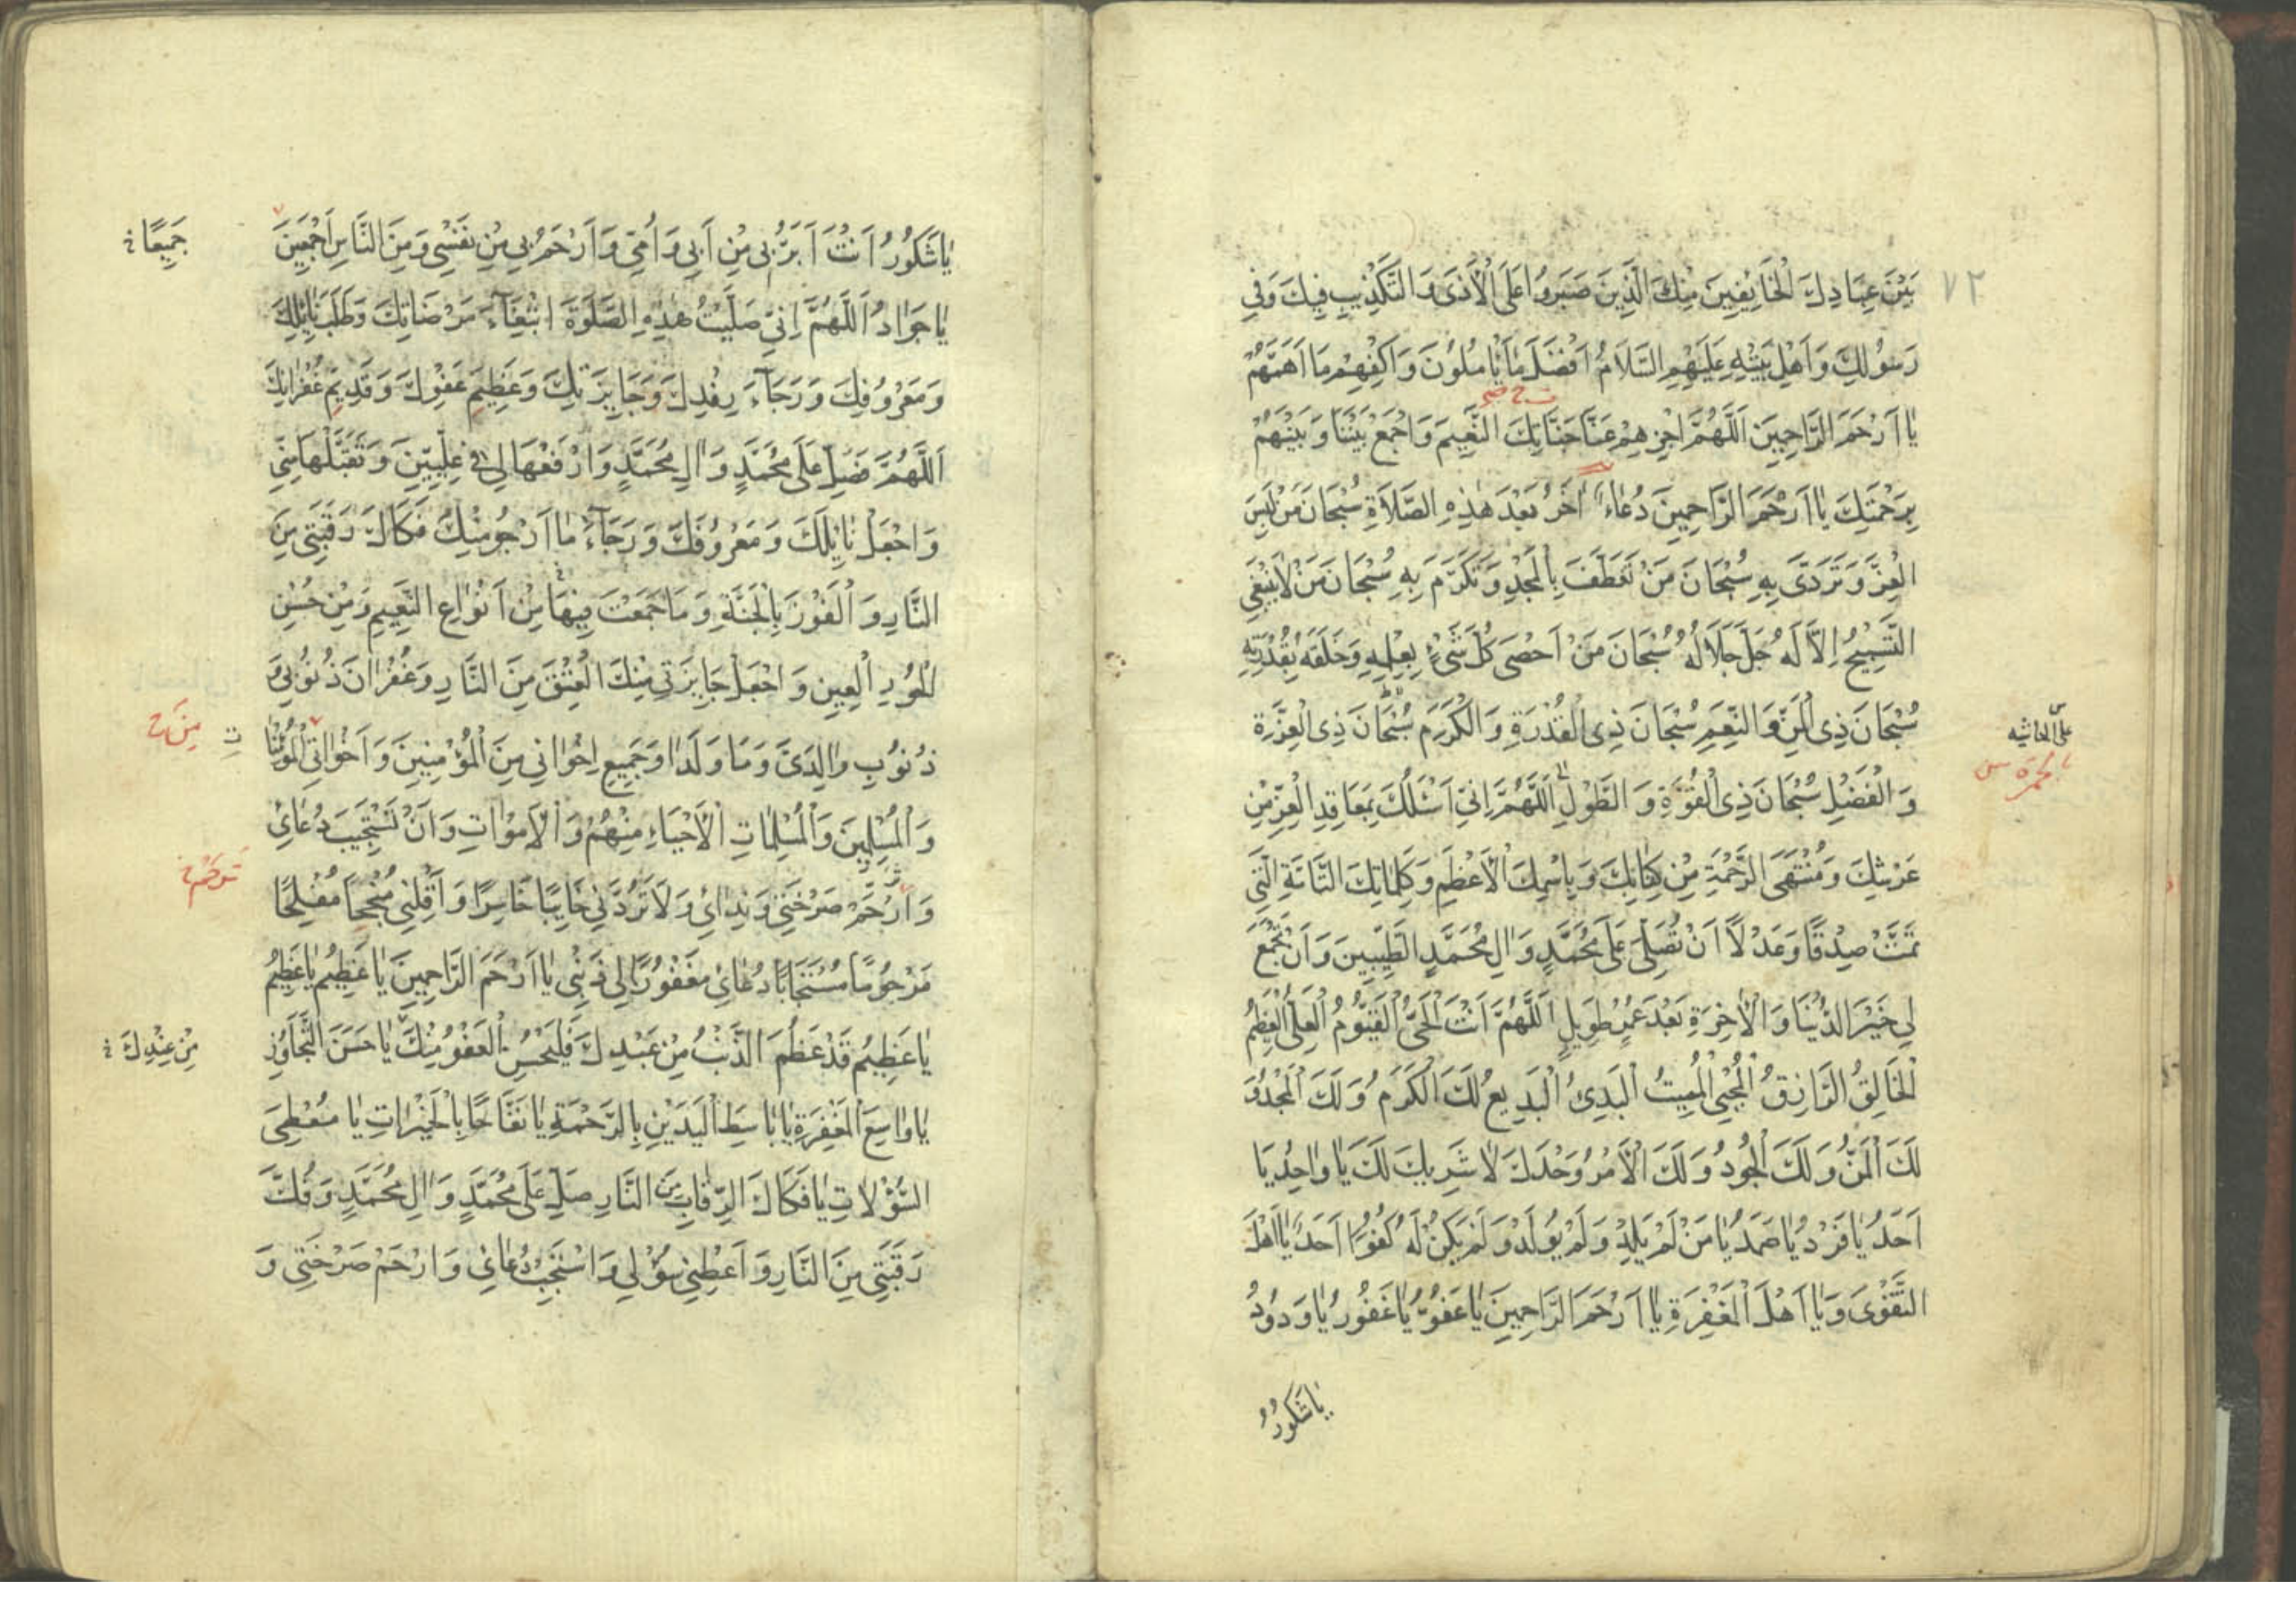 ٧٢
بَيْنَ عِبَادِكَ الْخَائِفِينَ مِنْكَ الَّذِينَ صَبَرُوا عَلَى الْأَذَى وَالتَّكْذِيبِ فِيكَ وَفِي
رَسُولِكَ وَأَهْلِ بَيْتِهِ عَلَيْهِمُ السَّلَامُ أَفْضَلَ مَا يَأْمُلُونَ وَاكْفِهِمْ مَا أَهَمَّهُمْ
يَا أَرْحَمَ الرَّاحِمِينَ اَللَّهُمَّ اجْزِهِمْ عَنَّا جَنَّاتِكَ النَّعِيمَ وَاجْمَعْ بَيْنَنَا وَبَيْنَهُمْ
بِرَحْمَتِكَ يَا أَرْحَمَ الرَّاحِمِينَ دُعَاءٌ اٰخَرُ بَعْدَ هٰذِهِ الصَّلَاةِ سُبْحَانَ مَنْ لَبِسَ
الْعِزَّ وَتَرَدَّى بِهِ سُبْحَانَ مَنْ تَعَطَّفَ بِالْمَجْدِ وَتَكَرَّمَ بِهِ سُبْحَانَ مَنْ لَا يَنْبَغِي
التَّسْبِيحُ إِلَّا لَهُ جَلَّ جَلَالُهُ سُبْحَانَ مَنْ أَحْصَى كُلَّ شَيْءٍ بِعِلْمِهِ وَخَلَقَهُ بِقُدْرَتِهِ
سُبْحَانَ ذِي الْمَنِّ وَالنِّعَمِ سُبْحَانَ ذِي الْقُدْرَةِ وَالْكَرَمِ سُبْحَانَ ذِي الْعِزَّةِ
وَالْفَضْلِ سُبْحَانَ ذِي الْقُوَّةِ وَالطَّوْلِ اَللَّهُمَّ إِنِّي أَسْئَلُكَ بِمَعَاقِدِ الْعِزِّ مِنْ
عَرْشِكَ وَمُنْتَهَى الرَّحْمَةِ مِنْ كِتَابِكَ وَبِاسْمِكَ الْأَعْظَمِ وَكَلِمَاتِكَ التَّامَّةِ الَّتِي
تَمَّتْ صِدْقًا وَعَدْلًا أَنْ تُصَلِّيَ عَلَى مُحَمَّدٍ وَاٰلِ مُحَمَّدٍ الطَّيِّبِينَ وَأَنْ تَجْمَعَ
لِي خَيْرَ الدُّنْيَا وَالْاٰخِرَةِ بَعْدَ عُمْرٍ طَوِيلٍ اَللَّهُمَّ أَنْتَ الْحَيُّ الْقَيُّومُ الْعَلِيُّ الْعَظِيمُ
الْخَالِقُ الرَّازِقُ الْمُحْيِي الْمُمِيتُ الْبَدِئُ الْبَدِيعُ لَكَ الْكَرَمُ وَلَكَ الْمَجْدُ وَ
لَكَ الْمَنُّ وَلَكَ الْجُودُ وَلَكَ الْأَمْرُ وَحْدَكَ لَا شَرِيكَ لَكَ يَا وَاحِدُ يَا
أَحَدُ يَا فَرْدُ يَا صَمَدُ يَا مَنْ لَمْ يَلِدْ وَلَمْ يُولَدْ وَلَمْ يَكُنْ لَهُ كُفُوًا أَحَدٌ يَا أَهْلَ
التَّقْوَى وَيَا أَهْلَ الْمَغْفِرَةِ يَا أَرْحَمَ الرَّاحِمِينَ يَا عَفُوُّ يَا غَفُورُ يَا وَدُودُ
يَا شَكُورُ
يَا شَكُورُ أَنْتَ أَبَرُّ بِي مِنْ أَبِي وَأُمِّي وَأَرْحَمُ بِي مِنْ نَفْسِي وَمِنَ النَّاسِ أَجْمَعِينَ
جَمِيعًا
يَا جَوَادُ اَللَّهُمَّ إِنِّي صَلَّيْتُ هٰذِهِ الصَّلٰوةَ ابْتِغَاءَ مَرْضَاتِكَ وَطَلَبَ نَائِلِكَ
وَمَعْرُوفِكَ وَرَجَاءَ رِفْدِكَ وَجَايِزَتِكَ وَعَظِيمِ عَفْوِكَ وَقَدِيمِ غُفْرَانِكَ
اَللَّهُمَّ فَصَلِّ عَلَى مُحَمَّدٍ وَاٰلِ مُحَمَّدٍ وَارْفَعْهَا لِي فِي عِلِّيِّينَ وَتَقَبَّلْهَا مِنِّي
وَاجْعَلْ نَايِلَكَ وَمَعْرُوفَكَ وَرَجَاءَ مَا أَرْجُو مِنْكَ فَكَاكَ رَقَبَتِي مِنَ
النَّارِ وَالْفَوْزَ بِالْجَنَّةِ وَمَا جَمَعْتَ فِيهَا مِنْ أَنْوَاعِ النَّعِيمِ وَمِنْ حُسْنِ
الْحُورِ الْعِينِ وَاجْعَلْ جَايِزَتِي مِنْكَ الْعِتْقَ مِنَ النَّارِ وَغُفْرَانَ ذُنُوبِي وَ
ذُنُوبِ وَالِدَيَّ وَمَا وَلَدَا وَجَمِيعِ إِخْوَانِي مِنَ الْمُؤْمِنِينَ وَأَخَوَاتِي الْمُؤْمِنَا
ت
مِنَ
وَالْمُسْلِمِينَ وَالْمُسْلِمَاتِ الْأَحْيَاءِ مِنْهُمْ وَالْأَمْوَاتِ وَأَنْ تَسْتَجِيبَ دُعَائِي
وَارْحَمْ صَرْخَتِي وَنِدَائِي وَلَا تَرُدَّنِي خَايِبًا خَاسِرًا وَاقْلِبْنِي مُنْجِحًا مُفْلِحًا
تَرْحَمَ
مَرْحُومًا مُسْتَجَابًا دُعَائِي مَغْفُورًا لِي ذَنْبِي يَا أَرْحَمَ الرَّاحِمِينَ يَا عَظِيمُ يَا عَظِيمُ
يَا عَظِيمُ قَدْ عَظُمَ الذَّنْبُ مِنْ عَبْدِكَ فَلْيَحْسُنِ الْعَفْوُ مِنْكَ يَا حَسَنَ التَّجَاوُزِ
مِنْ عِنْدِكَ
يَا وَاسِعَ الْمَغْفِرَةِ يَا بَاسِطَ الْيَدَيْنِ بِالرَّحْمَةِ يَا نَفَّاحًا بِالْخَيْرَاتِ يَا مُعْطِيَ
السُّؤْلَاتِ يَا فَكَّاكَ الرِّقَابِ مِنَ النَّارِ صَلِّ عَلَى مُحَمَّدٍ وَاٰلِ مُحَمَّدٍ وَفُكَّ
رَقَبَتِي مِنَ النَّارِ وَأَعْطِنِي سُؤْلِي وَاسْتَجِبْ دُعَائِي وَارْحَمْ صَرْخَتِي وَ